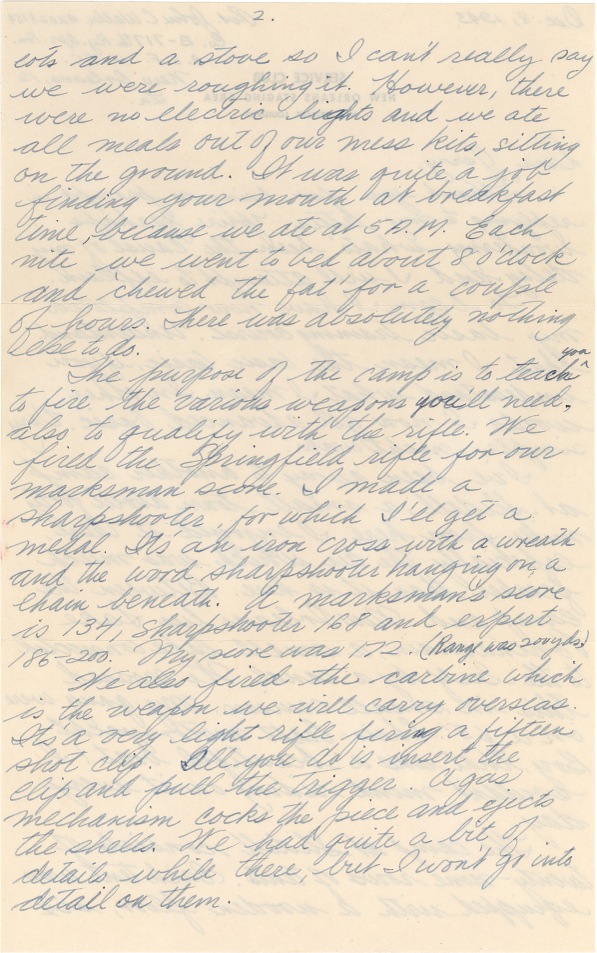 2.
cots and a stove so I can't really say
we were roughing it. However, there
were no electric lights and we ate
all meals out of our mess kits, sitting
on the ground. It was quite a job
finding your mouth at breakfast
time, because we ate at 5 A.M. Each
nite we went to bed about 8 o'clock
and 'chewed the fat' for a couple
of hours. There was absolutely nothing
else to do.
The purpose of the camp is to teach you
to fire the various weapons you'll need,
also to qualify with the rifle. We
fired the Springfield rifle for our
marksman score. I made a
sharpshooter, for which I'll get a
medal. It's an iron cross with a wreath
and the word sharpshooter hanging on a
chain beneath. A marksman's score
is 134, sharpshooter 168 and expert
186-200. My score was 172. (Range was 200 yds.)
We also fired the carbine which
is the weapon we will carry overseas.
It's a very light rifle firing a fifteen
shot clip. All you do is insert the
clip and pull the trigger. A gas
mechanism cocks the piece and ejects
the shells. We had quite a bit of
details while there, but I won't go into
detail on them.